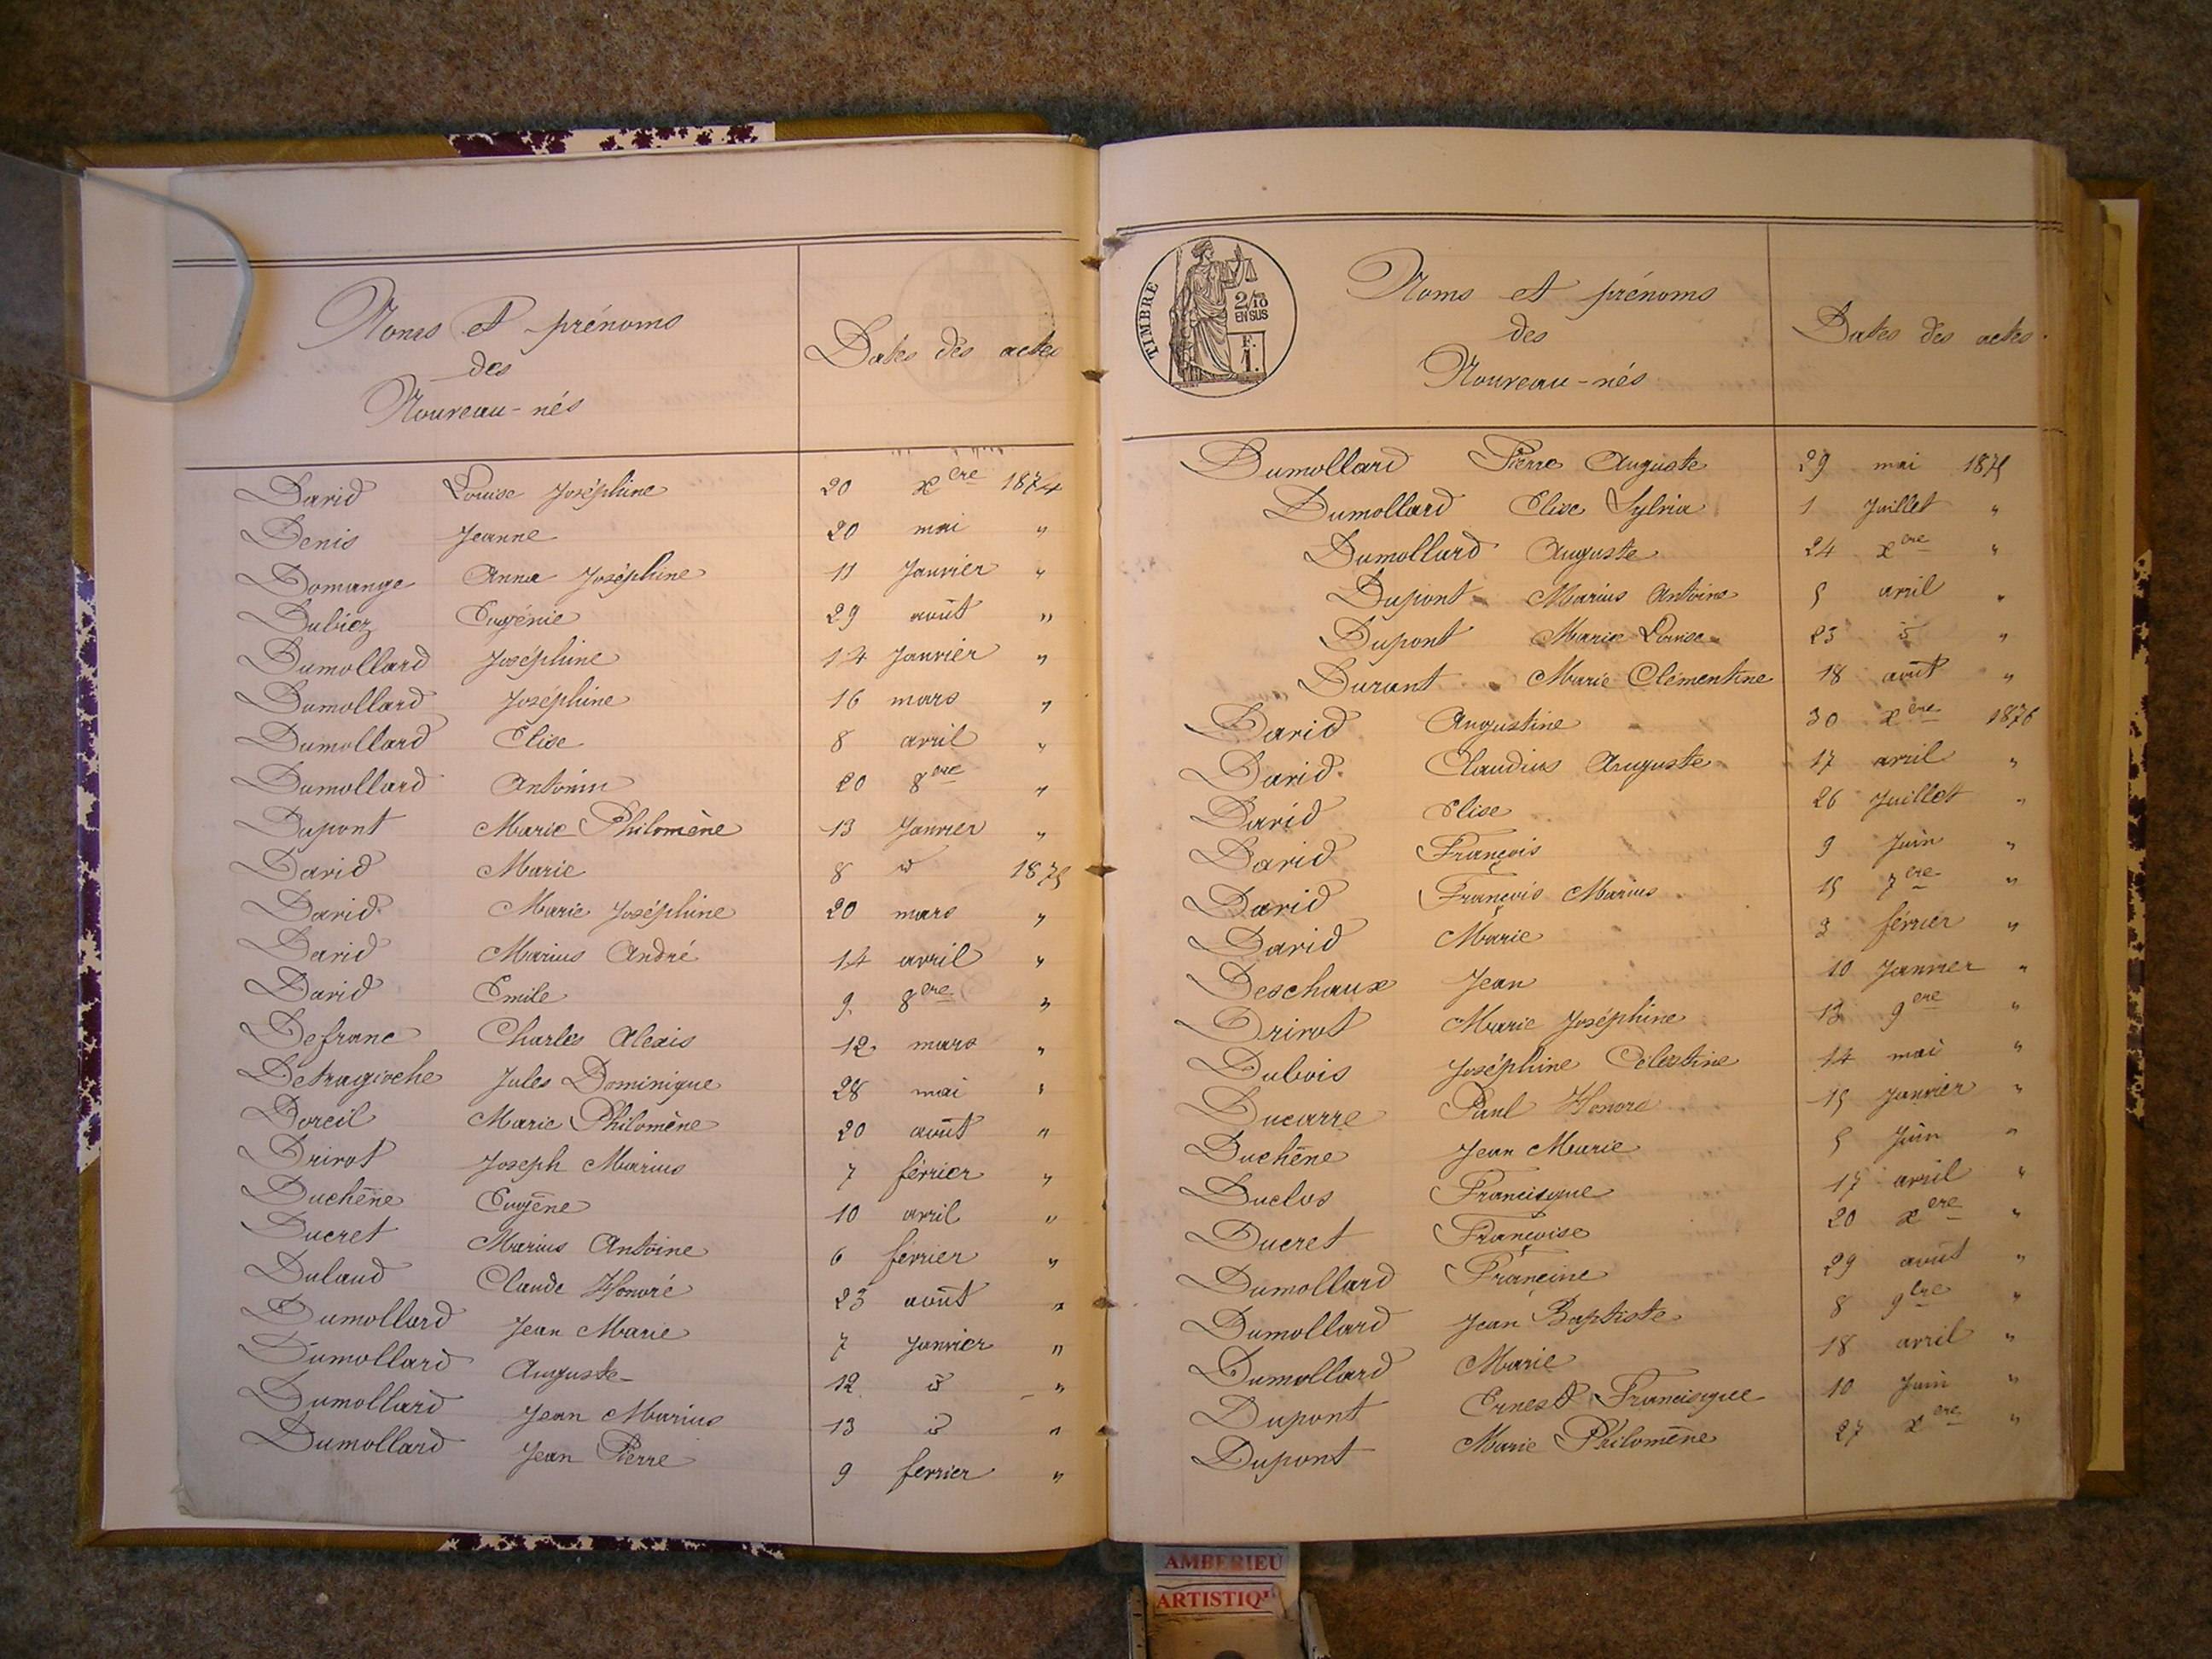 Noms et prénoms
des
Nouveau-nés
Dates des actes
David Louise Joséphine 20 xbre 1874
Denis Jeanne 20 mai "
Domange Anna Joséphine 11 Janvier "
Dubiez Eugénie 29 août "
Dumollard Joséphine 14 Janvier "
Dumollard Joséphine 16 mars "
Dumollard Elise 8 avril "
Dumollard Antonin 20 8bre "
Dupont Marie Philomène 13 Janvier "
David Marie 8 d 1875
David Marie Joséphine 20 mars "
David Marius André 14 avril "
David Emile 9 8bre "
Defranc Charles Alexis 12 mars "
Detragiache Jules Dominique 28 mai "
Doreil Marie Philomène 20 août "
Drivot Joseph Marius 7 février "
Duchêne Eugène 10 avril "
Ducret Marius Antoine 6 février "
Dulaud Claude Honoré 23 août "
Dumollard Jean Marie 7 Janvier "
Dumollard Auguste 12 d "
Dumollard Jean Marius 13 d "
Dumollard Jean Pierre 9 février "
TIMBRE
2/10
EN SUS
F.
1.
Noms et prénoms
des
Nouveau-nés
Dates des actes.
Dumollard Pierre Auguste 29 mai 1875
Dumollard Elise Sylvia 1 Juillet "
Dumollard Auguste 24 xbre "
Dupont Marius Antoine 5 avril "
Dupont Marie Louise 23 d "
Durant Marie Clémentine 18 août "
David Augustine 30 xbre 1876
David Claudius Auguste 17 avril "
David Elise 26 Juillet "
David François 9 Juin "
David François Marius 15 7bre "
David Marie 3 février "
Deschaux Jean 10 Janvier "
Drivot Marie Joséphine 13 9bre "
Dubois Joséphine Célestine 14 mai "
Ducarre Paul Honoré 15 Janvier "
Duchêne Jean Marie 5 Juin "
Duclos Francisque 17 avril "
Ducret Françoise 20 xbre "
Dumollard Françine 29 août "
Dumollard Jean Baptiste 8 9bre "
Dumollard Marie 18 avril "
Dupont Ernest Francisque 10 Juin "
Dupont Marie Philomène 27 xbre "
AMBERIEU
ARTISTIQ